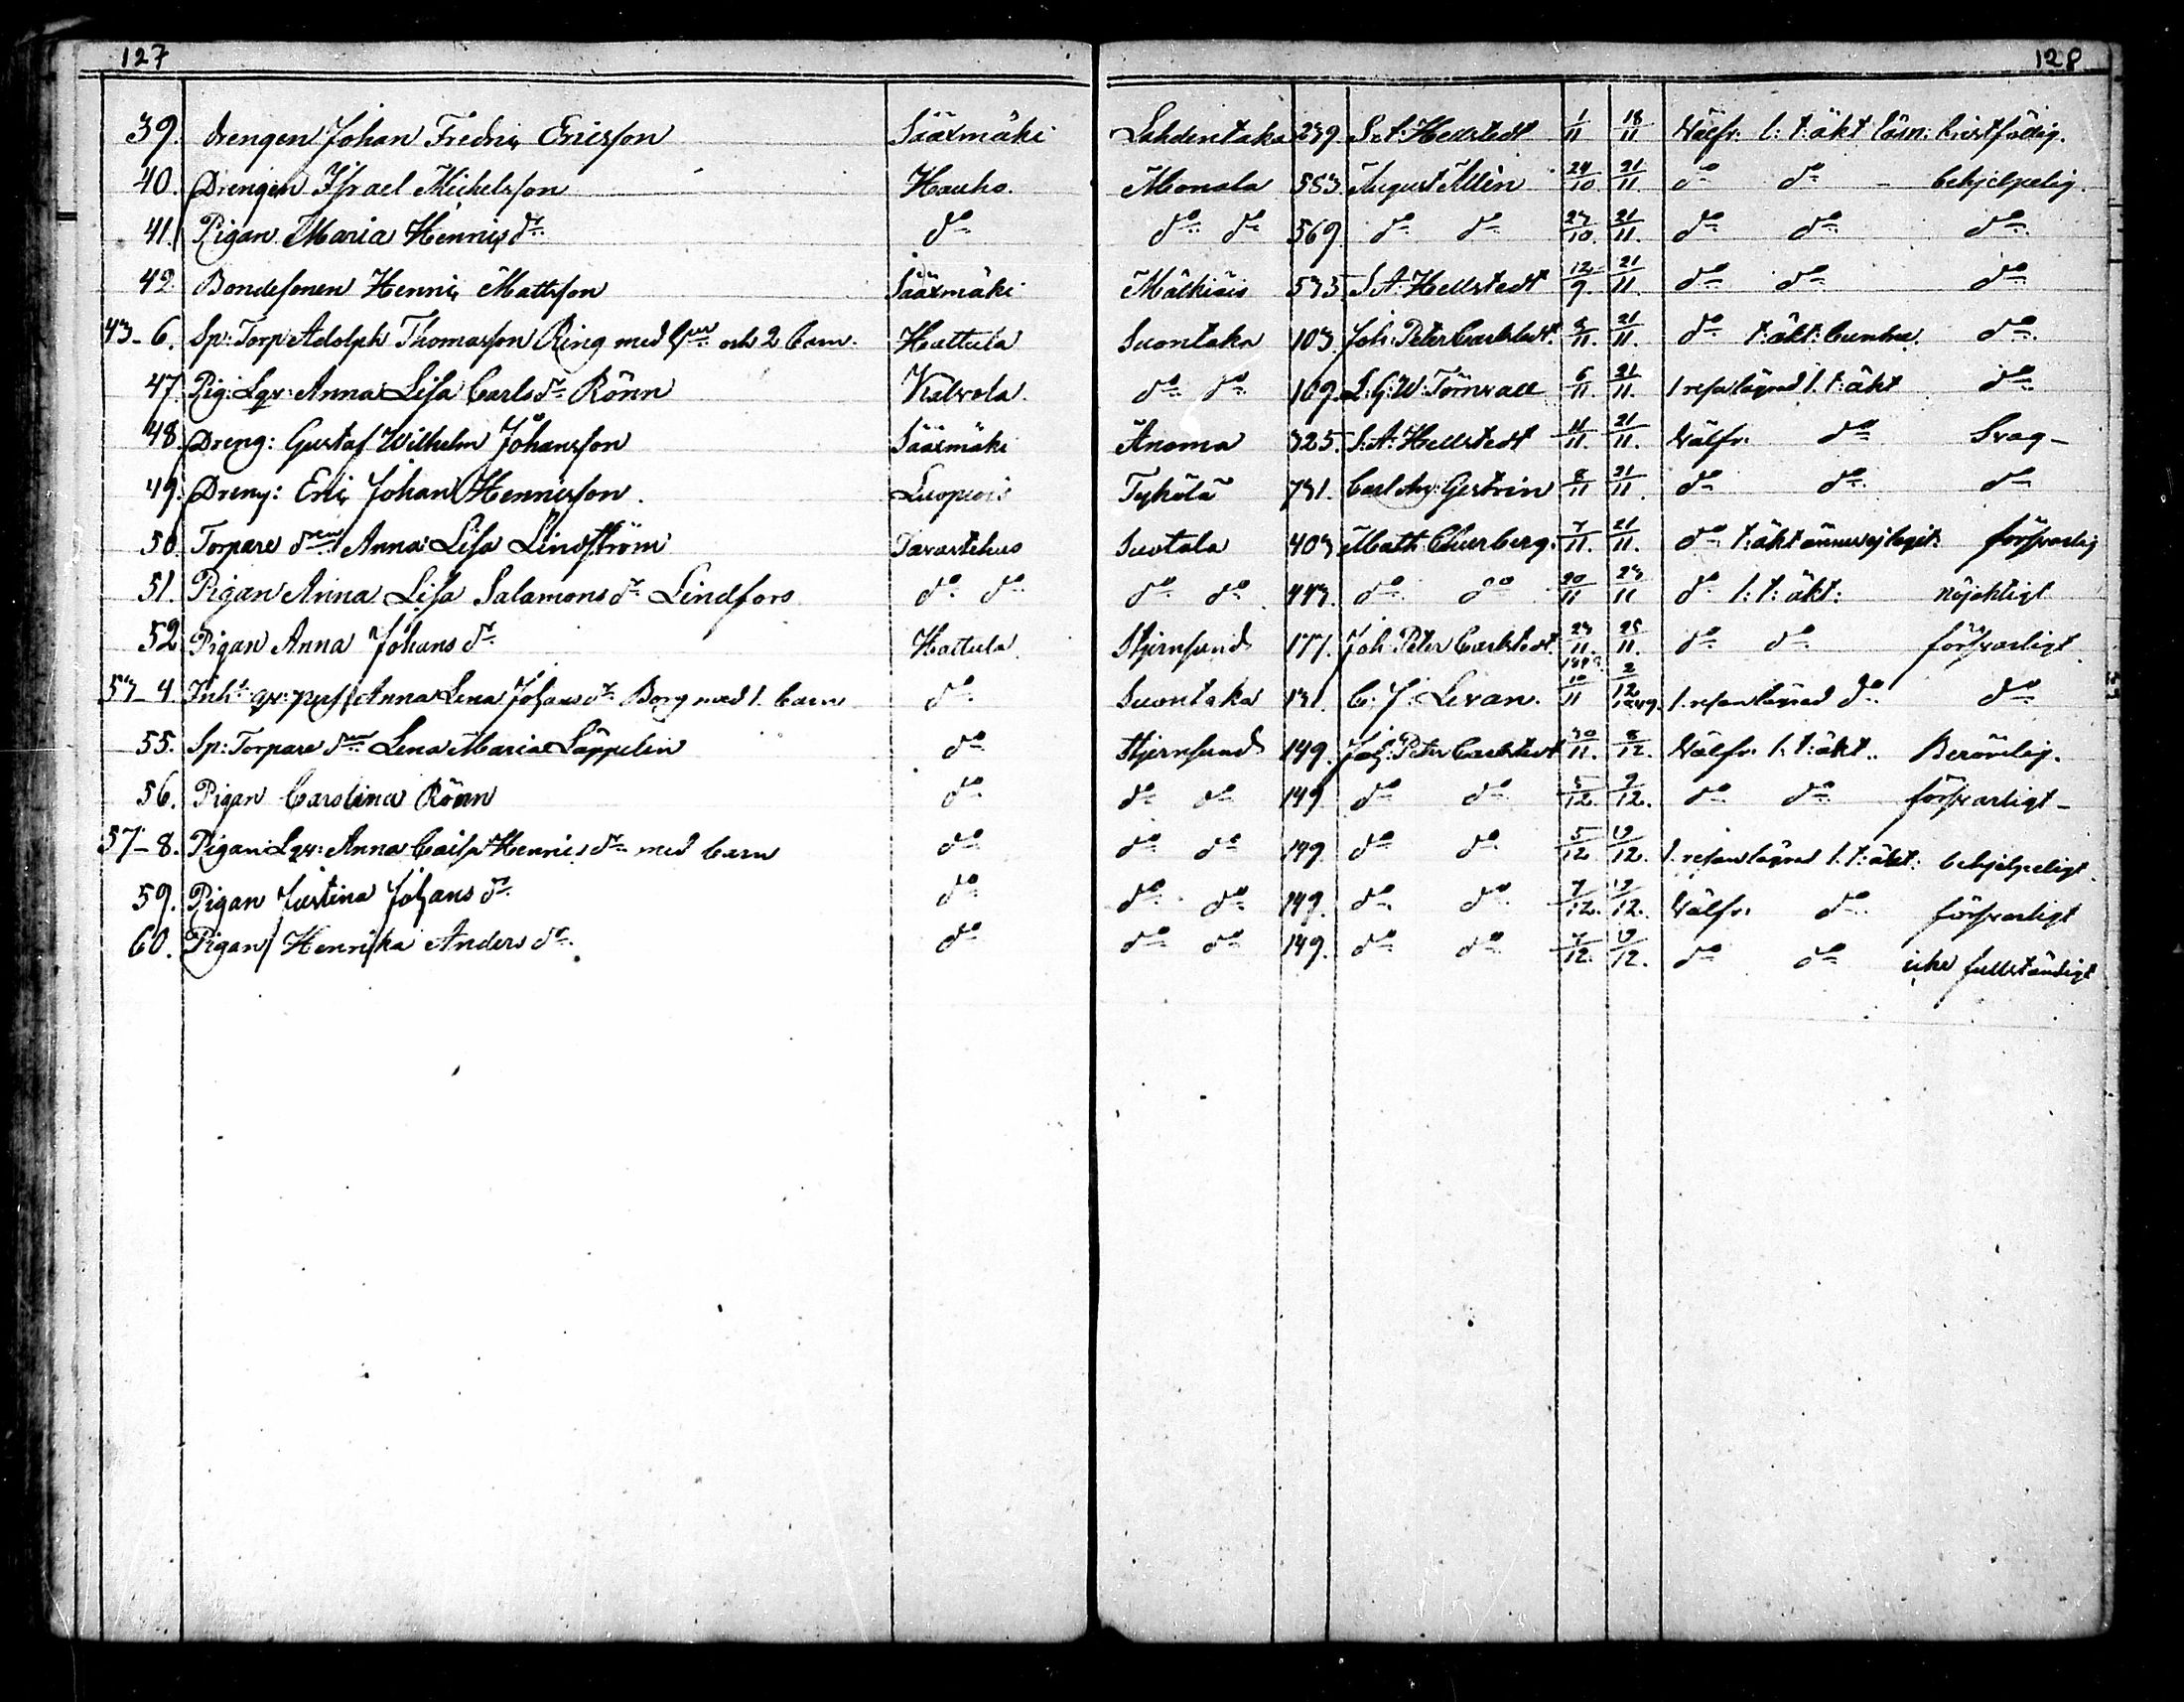 127 128
39. Drengen Johan Fredric Ericsson Sääxmäki Lahdentaka 239. S. A: Hellstedt 1/11 18/11 Wälfr: l: t: äkt läsn: bristfällig.
40. Drengen Israel Michelsson Hauho. Monala 553. August Allén 24/10. 21/11. do do - behjelpelig.
41. Pigan Maria Henricsdr do do do 569. do do 23/10. 21/11. do do do
42. Bondesonen Henric Mattsson Sääxmäki Mälkiäis 533. S. A: Hellstedt 12/9. 21/11. do do do
43-6. Sp: Torp: Adolph Thomasson Ring med och 2 barn. Hattula Suontaka 103. Joh: Peter Carlstedt. 21/11. do t: äkt: do
47. Pig: Lqv: Anna Lisa Carlsdr Rönn Kalvola. do do 109. L: G: W: Törnvall 6/11. 21/11. 1. resa lägrad l. t: äkt do
48. Dreng: Gustaf Wilhelm Johansson Sääxmäki Änoma 325. S: A: Hellstedt 11/11. 21/11. Wälfr: do Svag-
49. Dreng: Eric Johan Henricsson. Luopiois Tyhölä 731. Carl Gestrin 8/11 21/11. do do do
50. Torpare dren Anna Lisa Lindström Tavastehus Suotala 403 Math: Churberg. 7/11. 21/11. do t: äkt ännu ej begt: försvarlig
51. Pigan Anna Lisa Salamonsdr Lindfors do do do do 443. do do 20/11 23/11 do l: t: äkt: nöjaktigt
52 Pigan Anna Johansdr Hattula Stjernsund 177. Joh: Peter Carlstedt. 23/11. 25/11. do do försvarligt
53-4. Inh: Anna Lena Johansdr Borg med 1. barn do Suontaka 131. C: J: Levan. 10/11 2/12 1849. 1. resan lägrad do do
55. Sp: Torpare dren Lena Maria Läppelin do Stjernsund 149. Joh: Peter Carlstedt 30/11. 8/12. Wälfr: l: t: äkt. Berömlig.
56. Pigan Carolina Rönn do do do 149 do do 5/12. 9/12. do do försvarligt-
57-8. Pigan Lqv: Anna Caisa Henricsdr med barn do do do 149. do do 5/12. /12. 1. resan lägrad l. t: äkt: behjelpeligt.
59. Pigan Justina Johansdr do do do 149. do do 7/12. /12. Wälfr: do försvarligt
60. Pigan Henrika Andersdr. do do do 149. do do 7/12. /12. do do icke fullständigt